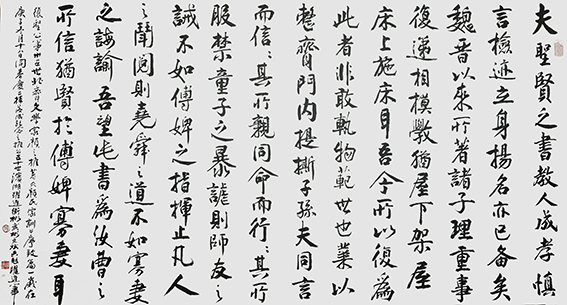 夫聖賢之書教人誠孝慎
言檢迹立身揚名亦已備矣
魏晉以來所著諸子理重事
復遞相模斆猶屋下架屋
床上施床耳吾今所以復爲
此者非敢軌物範世也業以
整齊門內提撕子孫夫同言
而信〻其所親同命而行〻其所
服禁童子之暴謔則師友之
誡不如傅婢之指揮止凡人
之鬪鬩則堯舜之道不如寡妻
之誨諭吾望此書爲汝曹之
所信猶賢於傅婢寡妻耳